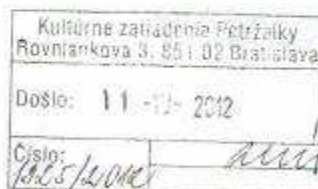 Kultúrne zariadenia Petržalky
Rovniankova 3, 851 02 Bratislava
Došlo: 11 -12- 2012
Číslo:
/2012